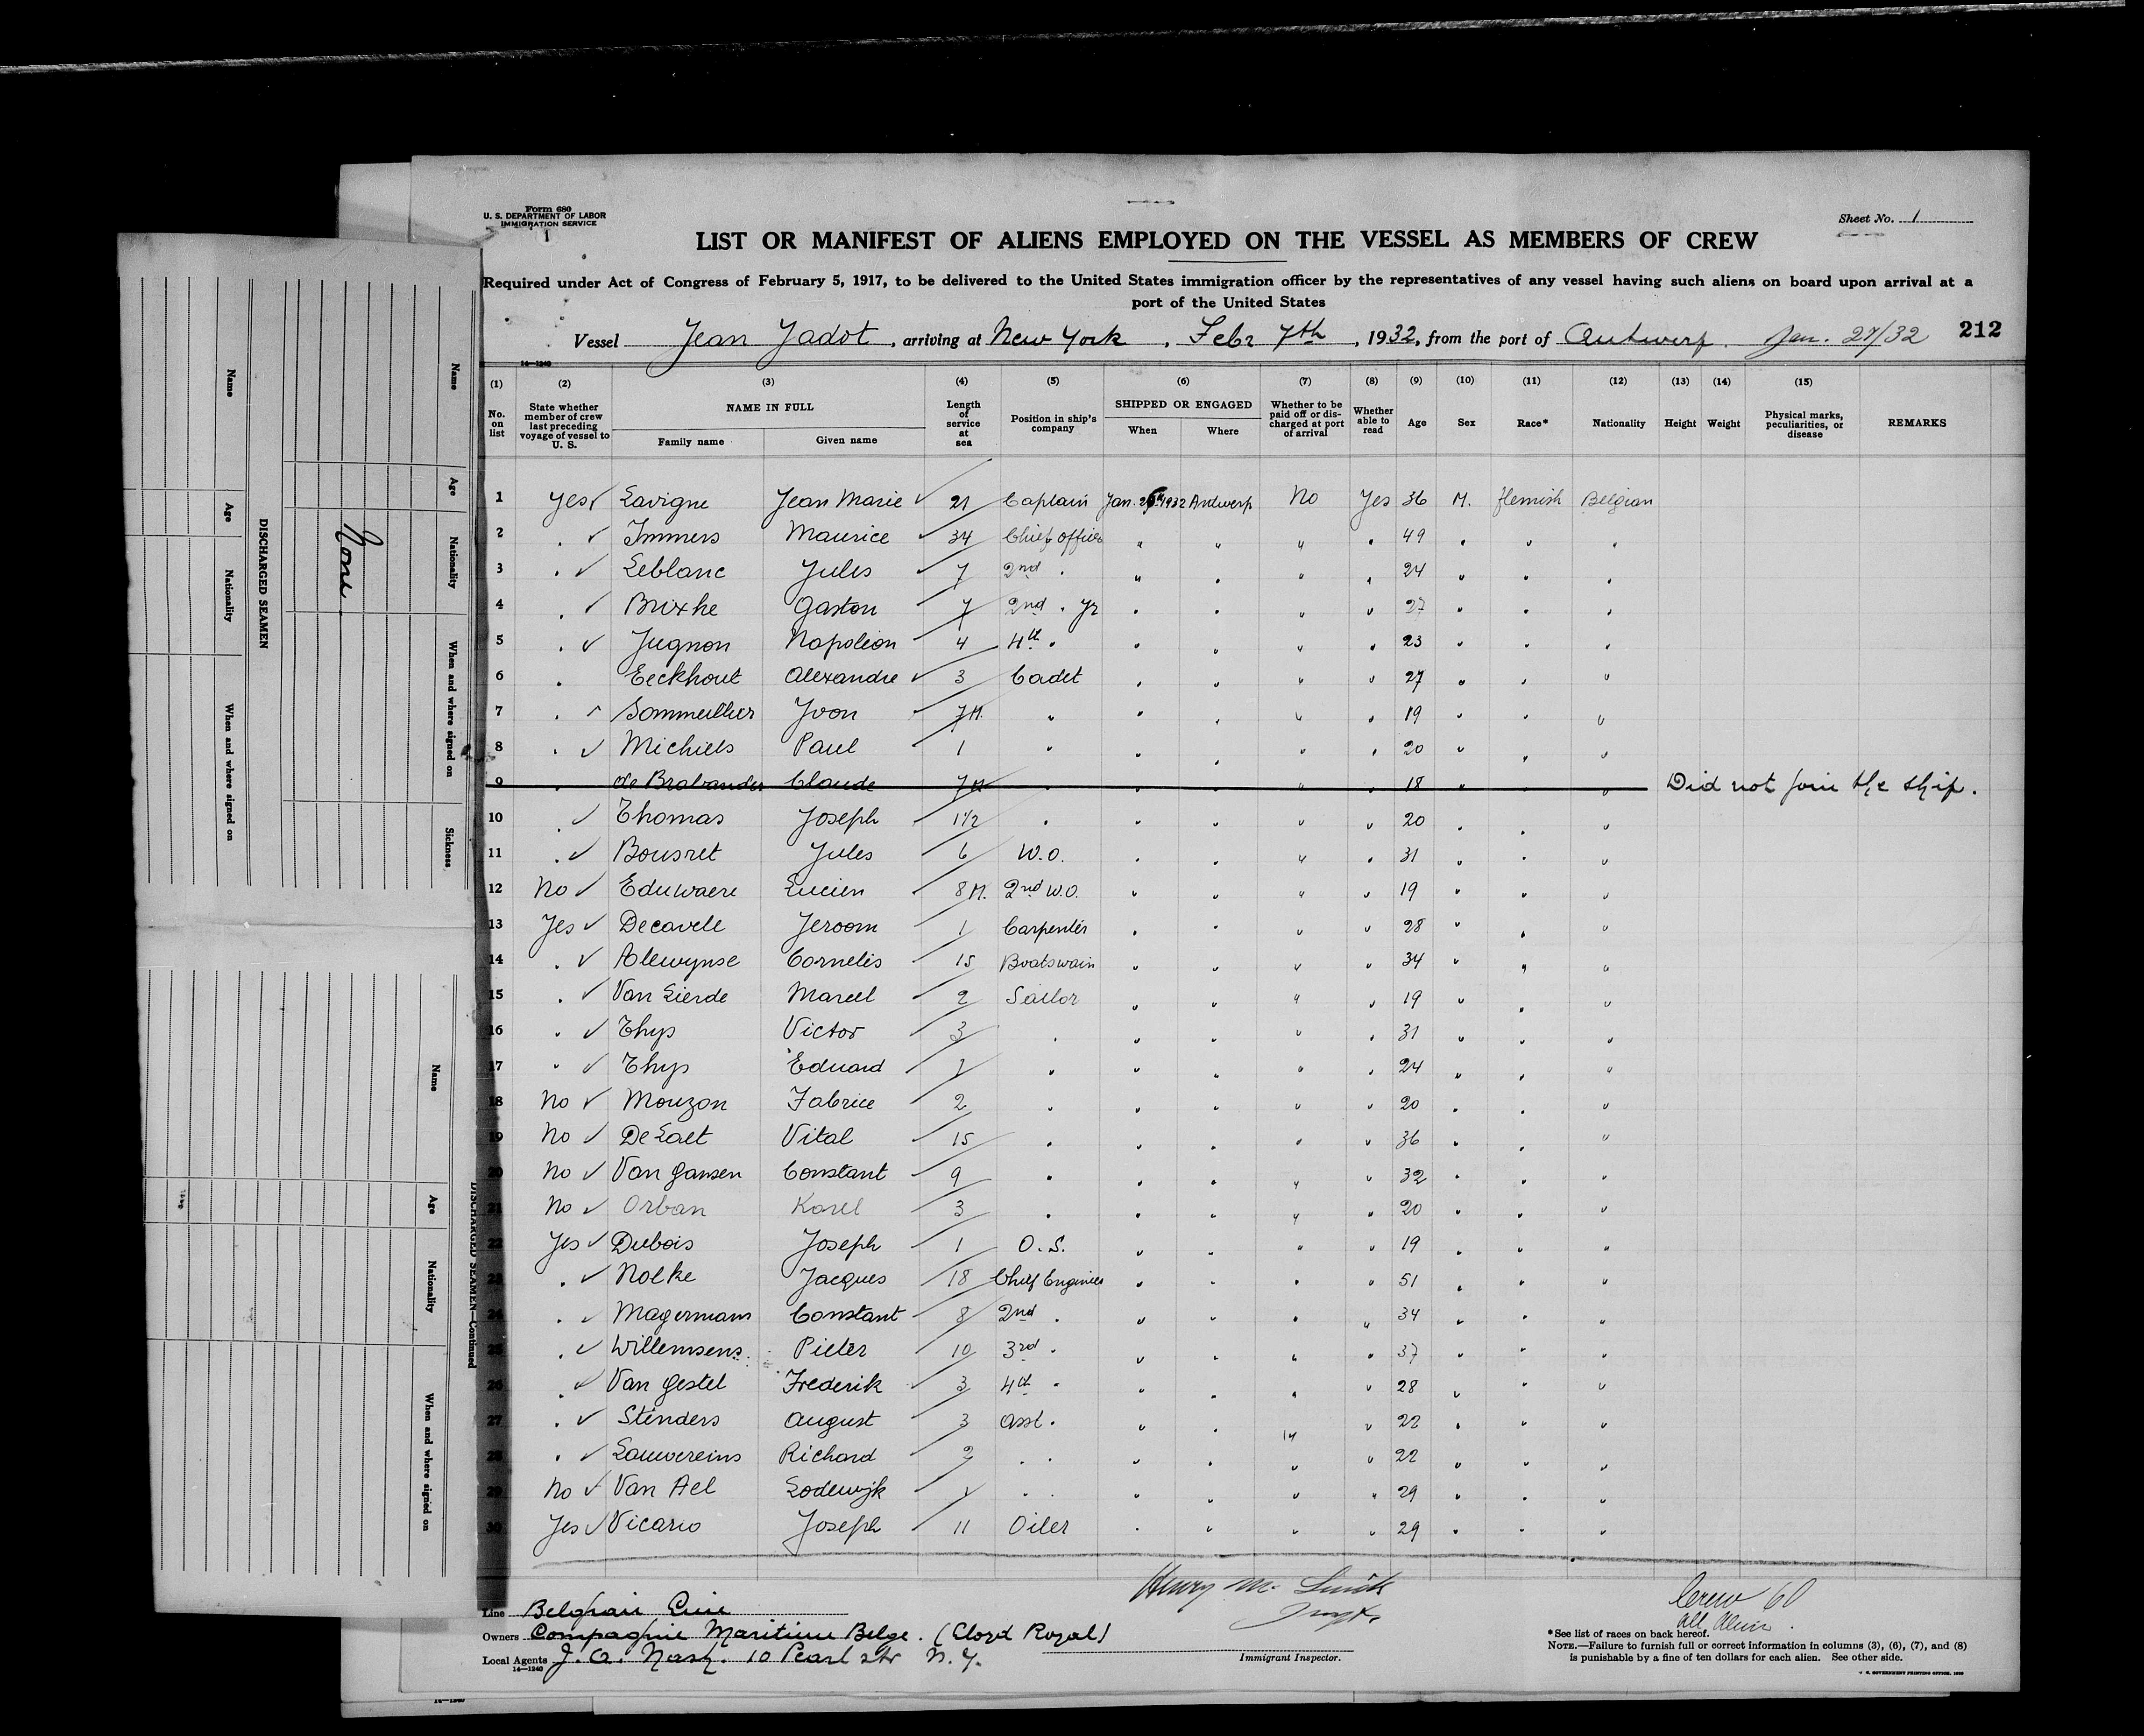 Form 680
U. S. DEPARTMENT OF LABOR
IMMIGRATION SERVICE
Sheet No. 1
LIST OR MANIFEST OF ALIENS EMPLOYED ON THE VESSEL AS MEMBERS OF CREW
Required under Act of Congress of February 5, 1917, to be delivered to the United States immigration officer by the representatives of any vessel having such aliens on board upon arrival at a
port of the United States
Vessel Jean Jadot, arriving at New York, Febr 7th, 1932, from the port of Antwerp. Jan. 27/32 212
14—1240
(1) (2) (3) (4) (5) (6) (7) (8) (9) (10) (11) (12) (13) (14) (15)
No. on list State whether member of crew last preceding voyage of vessel to U. S. NAME IN FULL Family name Given name Length of service at sea Position in ship's company SHIPPED OR ENGAGED When Where Whether to be paid off or discharged at port of arrival Whether able to read Age Sex Race* Nationality Height Weight Physical marks, peculiarities, or disease REMARKS
1 Yes ✓ Lavigne Jean Marie ✓ 21 Captain Jan. 26 1932 Antwerp No Yes 36 M. Flemish Belgian
2 " ✓ Immers Maurice 34 Chief Officer " " " " 49 " " "
3 " ✓ Leblanc Jules 7 2nd " " " " " 24 " " "
4 " ✓ Brixhe Gaston 7 2nd " Jr " " " " 27 " " "
5 " ✓ Jugnon Napoléon 4 4th " " " " " 23 " " "
6 " Eeckhout Alexandre ✓ 3 Cadet " " " " 27 " " "
7 " ✓ Sommeillier Yvon 7M. " " " " " 19 " " "
8 " ✓ Michiels Paul 1 " " " " " 20 " " "
9 " de Brabander Claude 7M " " " " " 18 " " " Did not join the ship.
10 " ✓ Thomas Joseph 1 1/2 " " " " " 20 " " "
11 " ✓ Bousret Jules 6 W.O. " " " " 31 " " "
12 No ✓ Eduwaere Lucien 8M. 2nd W.O. " " " " 19 " " "
13 Yes ✓ Decavele Jeroom 1 Carpenter " " " " 28 " " "
14 " ✓ Alewynse Cornelis 15 Boatswain " " " " 34 " " "
15 " ✓ Van Lierde Marcel 2 Sailor " " " " 19 " " "
16 " ✓ Thys Victor 3 " " " " " 31 " " "
17 " ✓ Thys Eduard 7 " " " " " 24 " " "
18 No ✓ Mouzon Fabrice 2 " " " " " 20 " " "
19 No ✓ De Laet Vital 15 " " " " " 36 " " "
20 No ✓ Van Gansen Constant 9 " " " " " 32 " " "
21 No ✓ Orban Karel 3 " " " " " 20 " " "
22 Yes ✓ Dubois Joseph 1 O.S. " " " " 19 " " "
23 " ✓ Nolke Jacques 18 Chief Engineer " " " " 51 " " "
24 " ✓ Magermans Constant 8 2nd " " " " " 34 " " "
25 " ✓ Willemsens Pieter 10 3rd " " " " " 37 " " "
26 " ✓ Van Gestel Frederik 3 4th " " " " " 28 " " "
27 " ✓ Stenders August 3 asst. " " " " 22 " " "
28 " ✓ Lauwereins Richard 2 " " " " " " 22 " " "
29 No ✓ Van Ael Lodewijk " " " " " " 29 " " "
30 Yes ✓ Vicario Joseph 11 Oiler " " " " 29 " " "
Line Belgian Line
Owners Compagnie Maritime Belge. (Lloyd Royal)
Local Agents J. A. Nash. 10 Pearl str N.Y.
14—1240
Henry M. Smith
Immigrant Inspector.
Crew 60
All Alien.
*See list of races on back hereof.
NOTE.—Failure to furnish full or correct information in columns (3), (6), (7), and (8)
is punishable by a fine of ten dollars for each alien. See other side.
DISCHARGED SEAMEN
Name Age Nationality When and where signed on
Name Age Nationality When and where signed on Sickness
None
DISCHARGED SEAMEN—Continued
Name Age Nationality When and where signed on